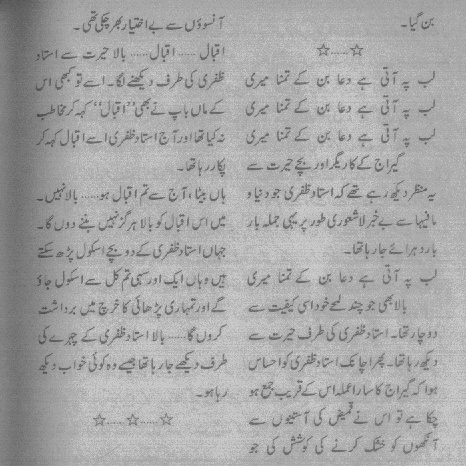 بن گیا۔
☆.....☆
لب پہ آتی ہے دعا بن کے تمنا میری
لب پہ آتی ہے دعا بن کے تمنا میری
لب پہ آتی ہے دعا بن کے تمنا میری
گیراج کے کاریگر اور بچے حیرت سے
یہ منظر دیکھ رہے تھے کہ استاد ظفری جو دنیا و
مافیہا سے بے خبر لاشعوری طور پر یہی جملہ بار
بار دہرائے جا رہا تھا۔
لب پہ آتی ہے دعا بن کے تمنا میری
بالا بھی جو چند لمحے خود اسی کیفیت سے
دوچار تھا۔ استاد ظفری کی طرف حیرت سے
دیکھ رہا تھا۔ پھر اچانک استاد ظفری کو احساس
ہوا کہ گیراج کا سارا عملہ اس کے قریب جمع ہو
چکا ہے تو اس نے قمیض کی آستیوں سے
آنکھوں کو خشک کرنے کی کوشش کی جو
آنسوؤں سے بے اختیار بھر چکی تھی۔
اقبال ...... اقبال...... بالا حیرت سے استاد
ظفری کی طرف دیکھنے لگا۔ اسے تو کبھی اس
کے ماں باپ نے بھی ’’اقبال‘‘ کہہ کر مخاطب
نہ کیا تھا اور آج استاد ظفری اسے اقبال کہہ کر
پکار رہا تھا۔
ہاں بیٹا، آج سے تم اقبال ہو...... بالا نہیں۔
میں اس اقبال کو بالا ہرگز نہیں بننے دوں گا۔
جہاں استاد ظفری کے دو بچے اسکول پڑھ سکتے
ہیں وہاں ایک اور سہی تم کل سے اسکول جاؤ
گے اور تمہاری پڑھائی کا خرچ میں برداشت
کروں گا...... بالا استاد ظفری کے چہرے کی
طرف دیکھے جا رہا تھا جیسے وہ کوئی خواب دیکھ
رہا ہو۔
☆......☆......☆